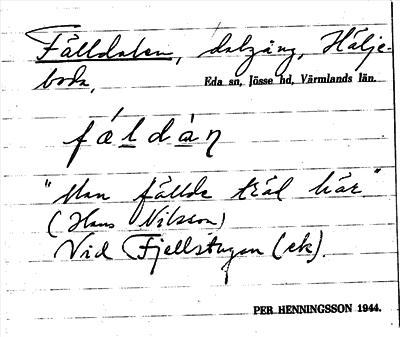 Fälldalen, dalgång, Hälje-
boda,
Eda sn, Jösse hd, Värmlands län.
fáldàn
"Man fällde träd här"
(Hans Nilsson)
Vid Fjellstugan (ek).
PER HENNINGSSON 1944.